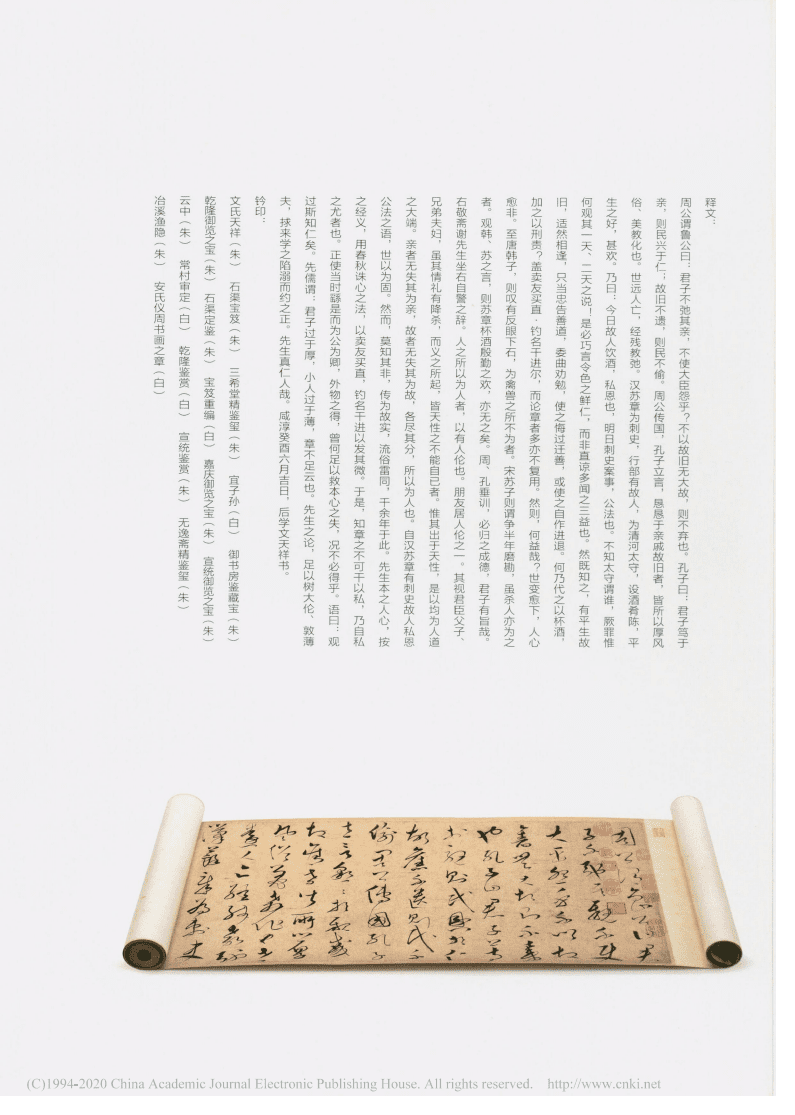 释文：
周公谓鲁公曰：君子不弛其亲，不使大臣怨乎？不以故旧无大故，则不弃也。孔子曰：君子笃于
亲，则民兴于仁；故旧不遗，则民不偷。周公传国，孔子立言，恳恳于亲戚故旧者，皆所以厚风
俗、美教化也。世远人亡，经残教弛。汉苏章为刺史，行部有故人，为清河太守，设酒肴陈，平
生之好，甚欢。乃曰：今日故人饮酒，私恩也，明日刺史案事，公法也。不知太守谓谁，厥罪惟
何观其一天、二天之说！是必巧言令色之鲜仁，而非直谅多闻之三益也。然既知之，有平生故
旧，适然相逢，只当忠告善道，委曲劝勉，使之悔过迁善，或使之自作进退。何乃代之以杯酒，
加之以刑责？盖卖友买直·钓名干进尔，而论章者多亦不复用。然则，何益哉？世变愈下，人心
愈非。至唐韩子，则叹有反眼下石，为禽兽之所不为者。宋苏子则谓争半年磨勘，虽杀人亦为之
者。观韩、苏之言，则苏章杯酒殷勤之欢，亦无之矣。周、孔垂训，必归之成德，君子有旨哉。
右敬斋谢先生坐右自警之辞。人之所以为人者，以有人伦也。朋友居人伦之一。其视君臣父子、
兄弟夫妇，虽其情礼有降杀，而义之所起，皆天性之不能自已者。惟其出于天性，是以均为人道
之大端。亲者无失其为亲，故者无失其为故，各尽其分，所以为人也。自汉苏章有刺史故人私恩
公法之语，世以为固。然而，莫知其非，传为故实，流俗雷同，千余年于此。先生本之人心，按
之经义，用春秋诛心之法，以卖友买直，钓名干进以发其微。于是，知章之不可干以私，乃自私
之尤者也。正使当时繇是而为公为卿，外物之得，曾何足以救本心之失，况不必得乎。语曰：观
过斯知仁矣。先儒谓：君子过于厚，小人过于薄，章不足云也。先生之论，足以树大伦、敦薄
夫，捄来学之陷溺而约之正。先生真仁人哉。咸淳癸酉六月吉日，后学文天祥书。
钤印：
文氏天祥（朱） 石渠宝笈（朱） 三希堂精鉴玺（朱） 宜子孙（白） 御书房鉴藏宝（朱）
乾隆御览之宝（朱） 石渠定鉴（朱） 宝笈重编（白） 嘉庆御览之宝（朱） 宣统御览之宝（朱）
云中（朱） 常村审定（白） 乾隆鉴赏（白） 宣统鉴赏（朱） 无逸斋精鉴玺（朱）
冶溪渔隐（朱） 安氏仪周书画之章（白）
(C)1994-2020 China Academic Journal Electronic Publishing House. All rights reserved. http://www.cnki.net